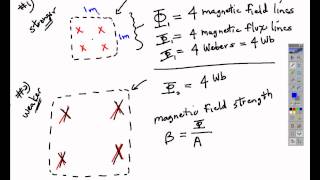 #1)
stronger
1m
1m
x x
x x
Φ₁ = 4 magnetic field lines
Φ₁ = 4 magnetic flux lines
Φ₁ = 4 Webers = 4 Wb
#2)
weaker
x x
x x
Φ₂ = 4 Wb
magnetic field strength
B = Φ / A